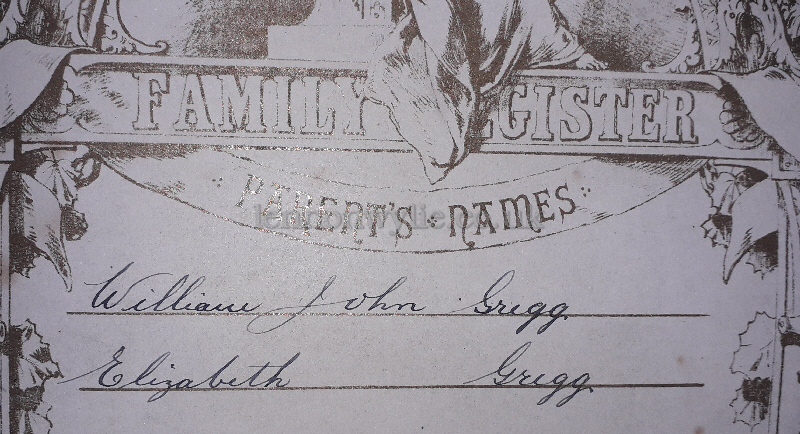 FAMILY REGISTER
PARENT'S NAMES
William John Gregg
Elizabeth Gregg